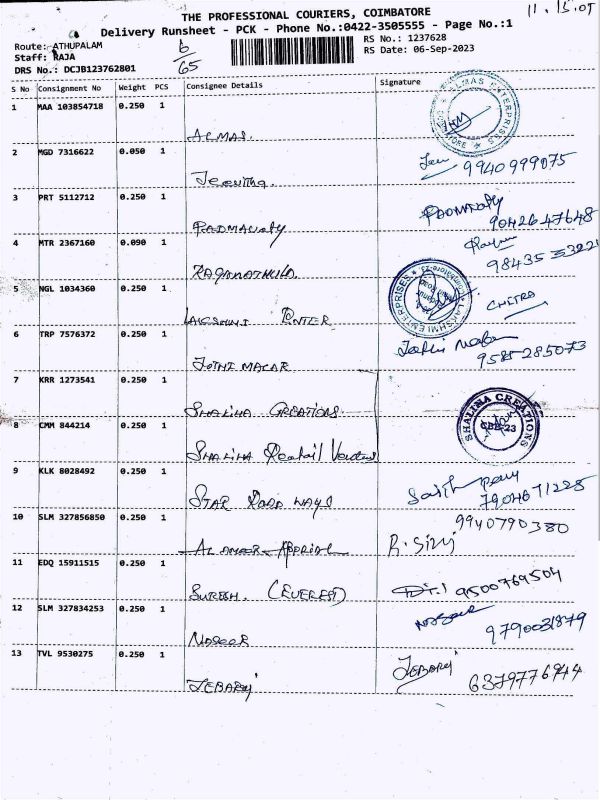 THE PROFESSIONAL COURIERS, COIMBATORE
11.15.05
Delivery Runsheet - PCK - Phone No.:0422-3505555 - Page No.:1
Route: ATHUPALAM
6/65
RS No.: 1237628
Staff: RAJA
RS Date: 06-Sep-2023
DRS No.: DCJB123762801
S No Consignment No Weight PCS Consignee Details Signature
1 MAA 103854718 0.250 1
ALMAS ENTERPRISES
ALMAS.
2 MGD 7316622 0.050 1
9940999075
Jeevitha.
3 PRT 5112712 0.250 1
Padmavathy
PADMAvaty
9042647648
4 MTR 2367160 0.090 1
98435 53221
5 NGL 1034360 0.250 1
LAKSHMI ENTERPRISES
CHITRA
LAKSHMI ENTER
6 TRP 7576372 0.250 1
9585285073
JOTHI MAGAR
7 KRR 1273541 0.250 1
SHALIHA CREATIONS.
8 CMM 844214 0.250 1
SHALIHA CREATIONS
CBE-23
SHALIHA
9 KLK 8028492 0.250 1
7904671228
STAR ROAD WAYS
10 SLM 327856850 0.250 1
9940790380
R. Siraj
11 EDQ 15911515 0.250 1
9500769504
SURESH. (EVEREST)
12 SLM 327834253 0.250 1
Naseer
9790031879
NASEER
13 TVL 9530275 0.250 1
JEBARAJ
6379776944
JEBARAJ